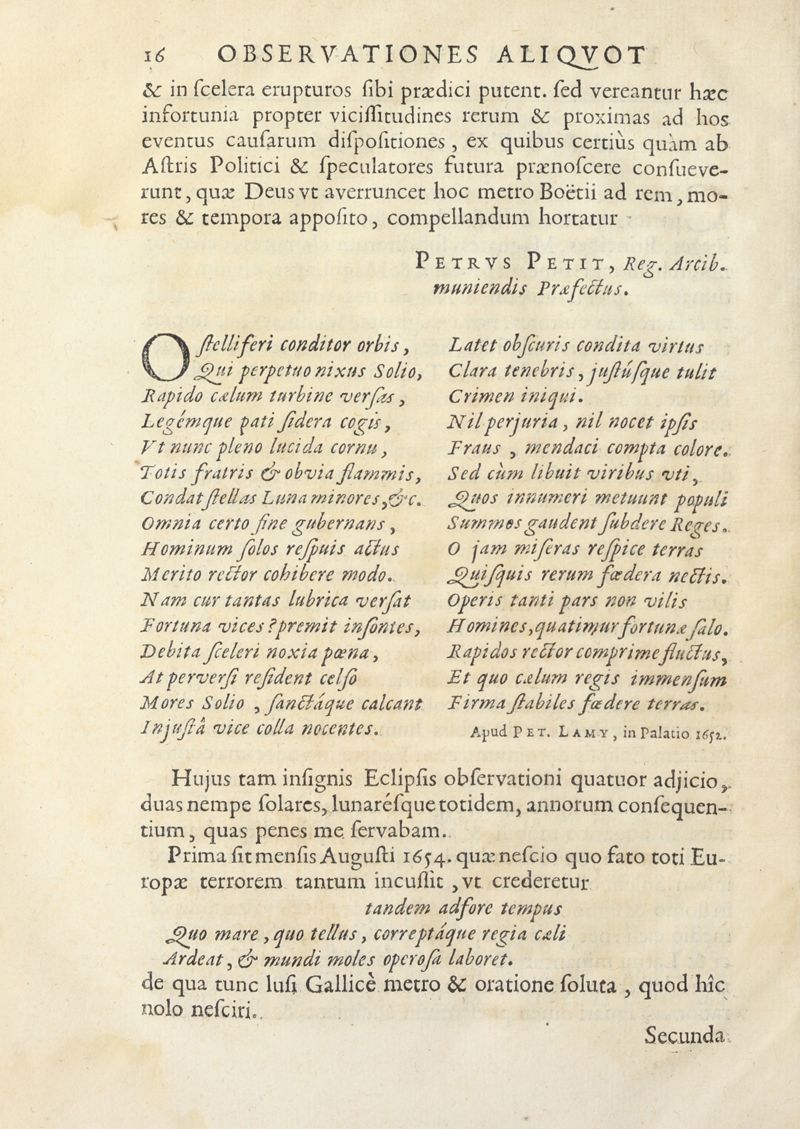 16 OBSERVATIONES ALIQVOT
& in ſcelera erupturos ſibi prædici putent. ſed vereantur hæc
infortunia propter viciſſitudines rerum & proximas ad hos
eventus cauſarum diſpoſitiones, ex quibus certiùs quàm ab
Aſtris Politici & ſpeculatores futura prænoſcere conſueve-
runt, quæ Deus vt averruncet hoc metro Boëtii ad rem, mo-
res & tempora appoſito, compellandum hortatur
PETRVS PETIT, Reg. Arcib.
muniendis Præfectus.
O ſtelliferi conditor orbis,
Qui perpetuo nixus Solio,
Rapido cælum turbine verſas,
Legémque pati ſidera cogis,
Vt nunc pleno lucida cornu,
Totis fratris & obvia flammis,
Condat ſtellas Luna minores, &c.
Omnia certo fine gubernans,
Hominum ſolos reſpuis actus
Merito rector cohibere modo.
Nam cur tantas lubrica verſat
Fortuna vices? premit inſontes,
Debita ſceleri noxia pœna,
At perverſi reſident celſo
Mores Solio, ſanctáque calcant
Injuſtâ vice colla nocentes.
Latet obſcuris condita virtus
Clara tenebris, juſtúſque tulit
Crimen iniqui.
Nil perjuria, nil nocet ipſis
Fraus, mendaci compta colore.
Sed cùm libuit viribus vti,
Quos innumeri metuunt populi
Summos gaudent ſubdere Reges.
O jam miſeras reſpice terras
Quiſquis rerum fœdera nectis.
Operis tanti pars non vilis
Homines, quatimur fortunæ ſalo.
Rapidos rector comprime fluctus,
Et quo cælum regis immenſum
Firma ſtabiles fœdere terras.
Apud PET. LAMY, in Palatio 1652.
Hujus tam inſignis Eclipſis obſervationi quatuor adjicio,
duas nempe ſolares, lunaréſque totidem, annorum conſequen-
tium, quas penes me ſervabam.
Prima fit menſis Auguſti 1654. quæ neſcio quo fato toti Eu-
ropæ terrorem tantum incuſſit, vt crederetur
tandem adfore tempus
Quo mare, quo tellus, correptáque regia cæli
Ardeat, & mundi moles operoſa laboret.
de qua tunc luſi Gallicè metro & oratione ſoluta, quod hîc
nolo neſciri.
Secunda